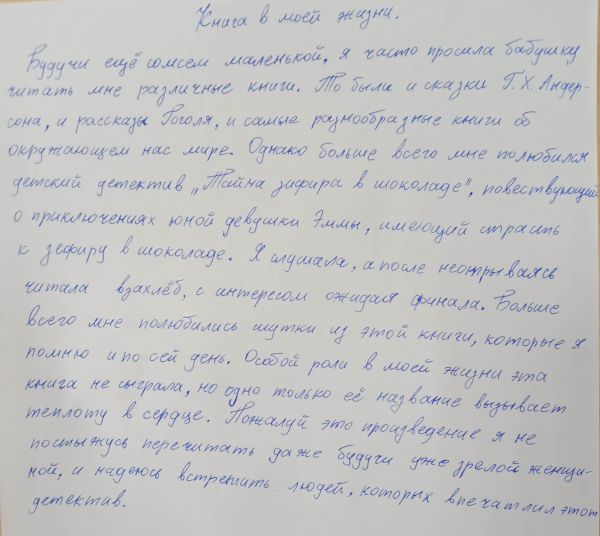 Книга в моей жизни.
Будучи ещё совсем маленькой, я часто просила бабушку
читать мне различные книги. То были и сказки Г.Х. Андер-
сона, и рассказы Гоголя, и самые разнообразные книги об
окружающем нас мире. Однако больше всего мне полюбился
детский детектив „Тайна зефира в шоколаде", повествующий
о приключениях юной девушки Эммы, имеющий страсть
к зефиру в шоколаде. Я слушала, а после неотрываясь
читала взахлёб, с интересом ожидая финала. Больше
всего мне полюбились шутки из этой книги, которые я
помню и по сей день. Особой роли в моей жизни эта
книга не сыграла, но одно только её название вызывает
теплоту в сердце. Пожалуй это произведение я не
постыжусь перечитать даже будучи уже зрелой женщи-
ной, и надеюсь встретить людей, которых впечатлил этот
детектив.